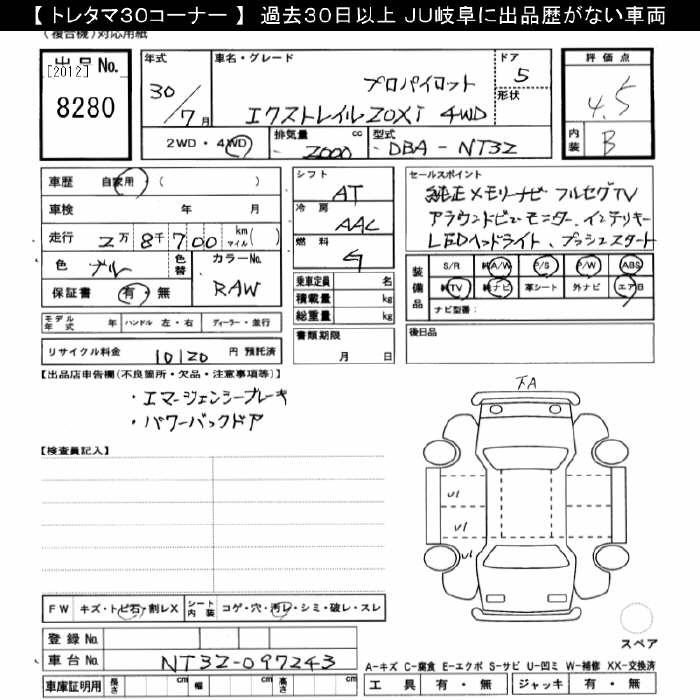 【 トレタマ30コーナー 】 過去30日以上 JU岐阜に出品歴がない車両
(複合機) 対応用紙
出品No. [2012] 8280
年式 30/7月
車名・グレード プロパイロット エクストレイル20Xi 4WD
ドア 5
形状
評価点 4.5
内装 B
2WD・4WD
排気量 2000 cc
型式 DBA - NT32
車歴 自家用・( )
車検 年 月
走行 2万 8千 700 km マイル( )
色 ブル 色替 カラーNo. RAW
保証書 有・無
モデル年式 年 ハンドル 左・右 ディーラー・並行
リサイクル料金 10120 円 預託済
シフト AT
冷房 AAC
燃料 G
乗車定員 名
積載量 kg
総重量 kg
書類期限 月 日
セールスポイント
純正メモリーナビ フルセグTV
アラウンドビューモニター、インテリキー
LEDヘッドライト、プッシュスタート
装備品 S/R 純A/W P/S P/W ABS
純TV 純ナビ 革シート 外ナビ エアB
ナビ型番:
後日品
【出品店申告欄(不良箇所・欠品・注意事項等)】
・エマージェンシーブレーキ
・パワーバックドア
【検査員記入】
下A
U1
U1
FW キズ・トビ石・割レX シート内装 コゲ・穴・汚レ・シミ・破レ・スレ
登録No.
車台No. NT32-097243
車庫証明用 長さ cm 幅 cm 高さ cm
スペア
A-キズ C-腐食 E-エクボ S-サビ U-凹ミ W-補修 XX-交換済
工具 有・無 ジャッキ 有・無